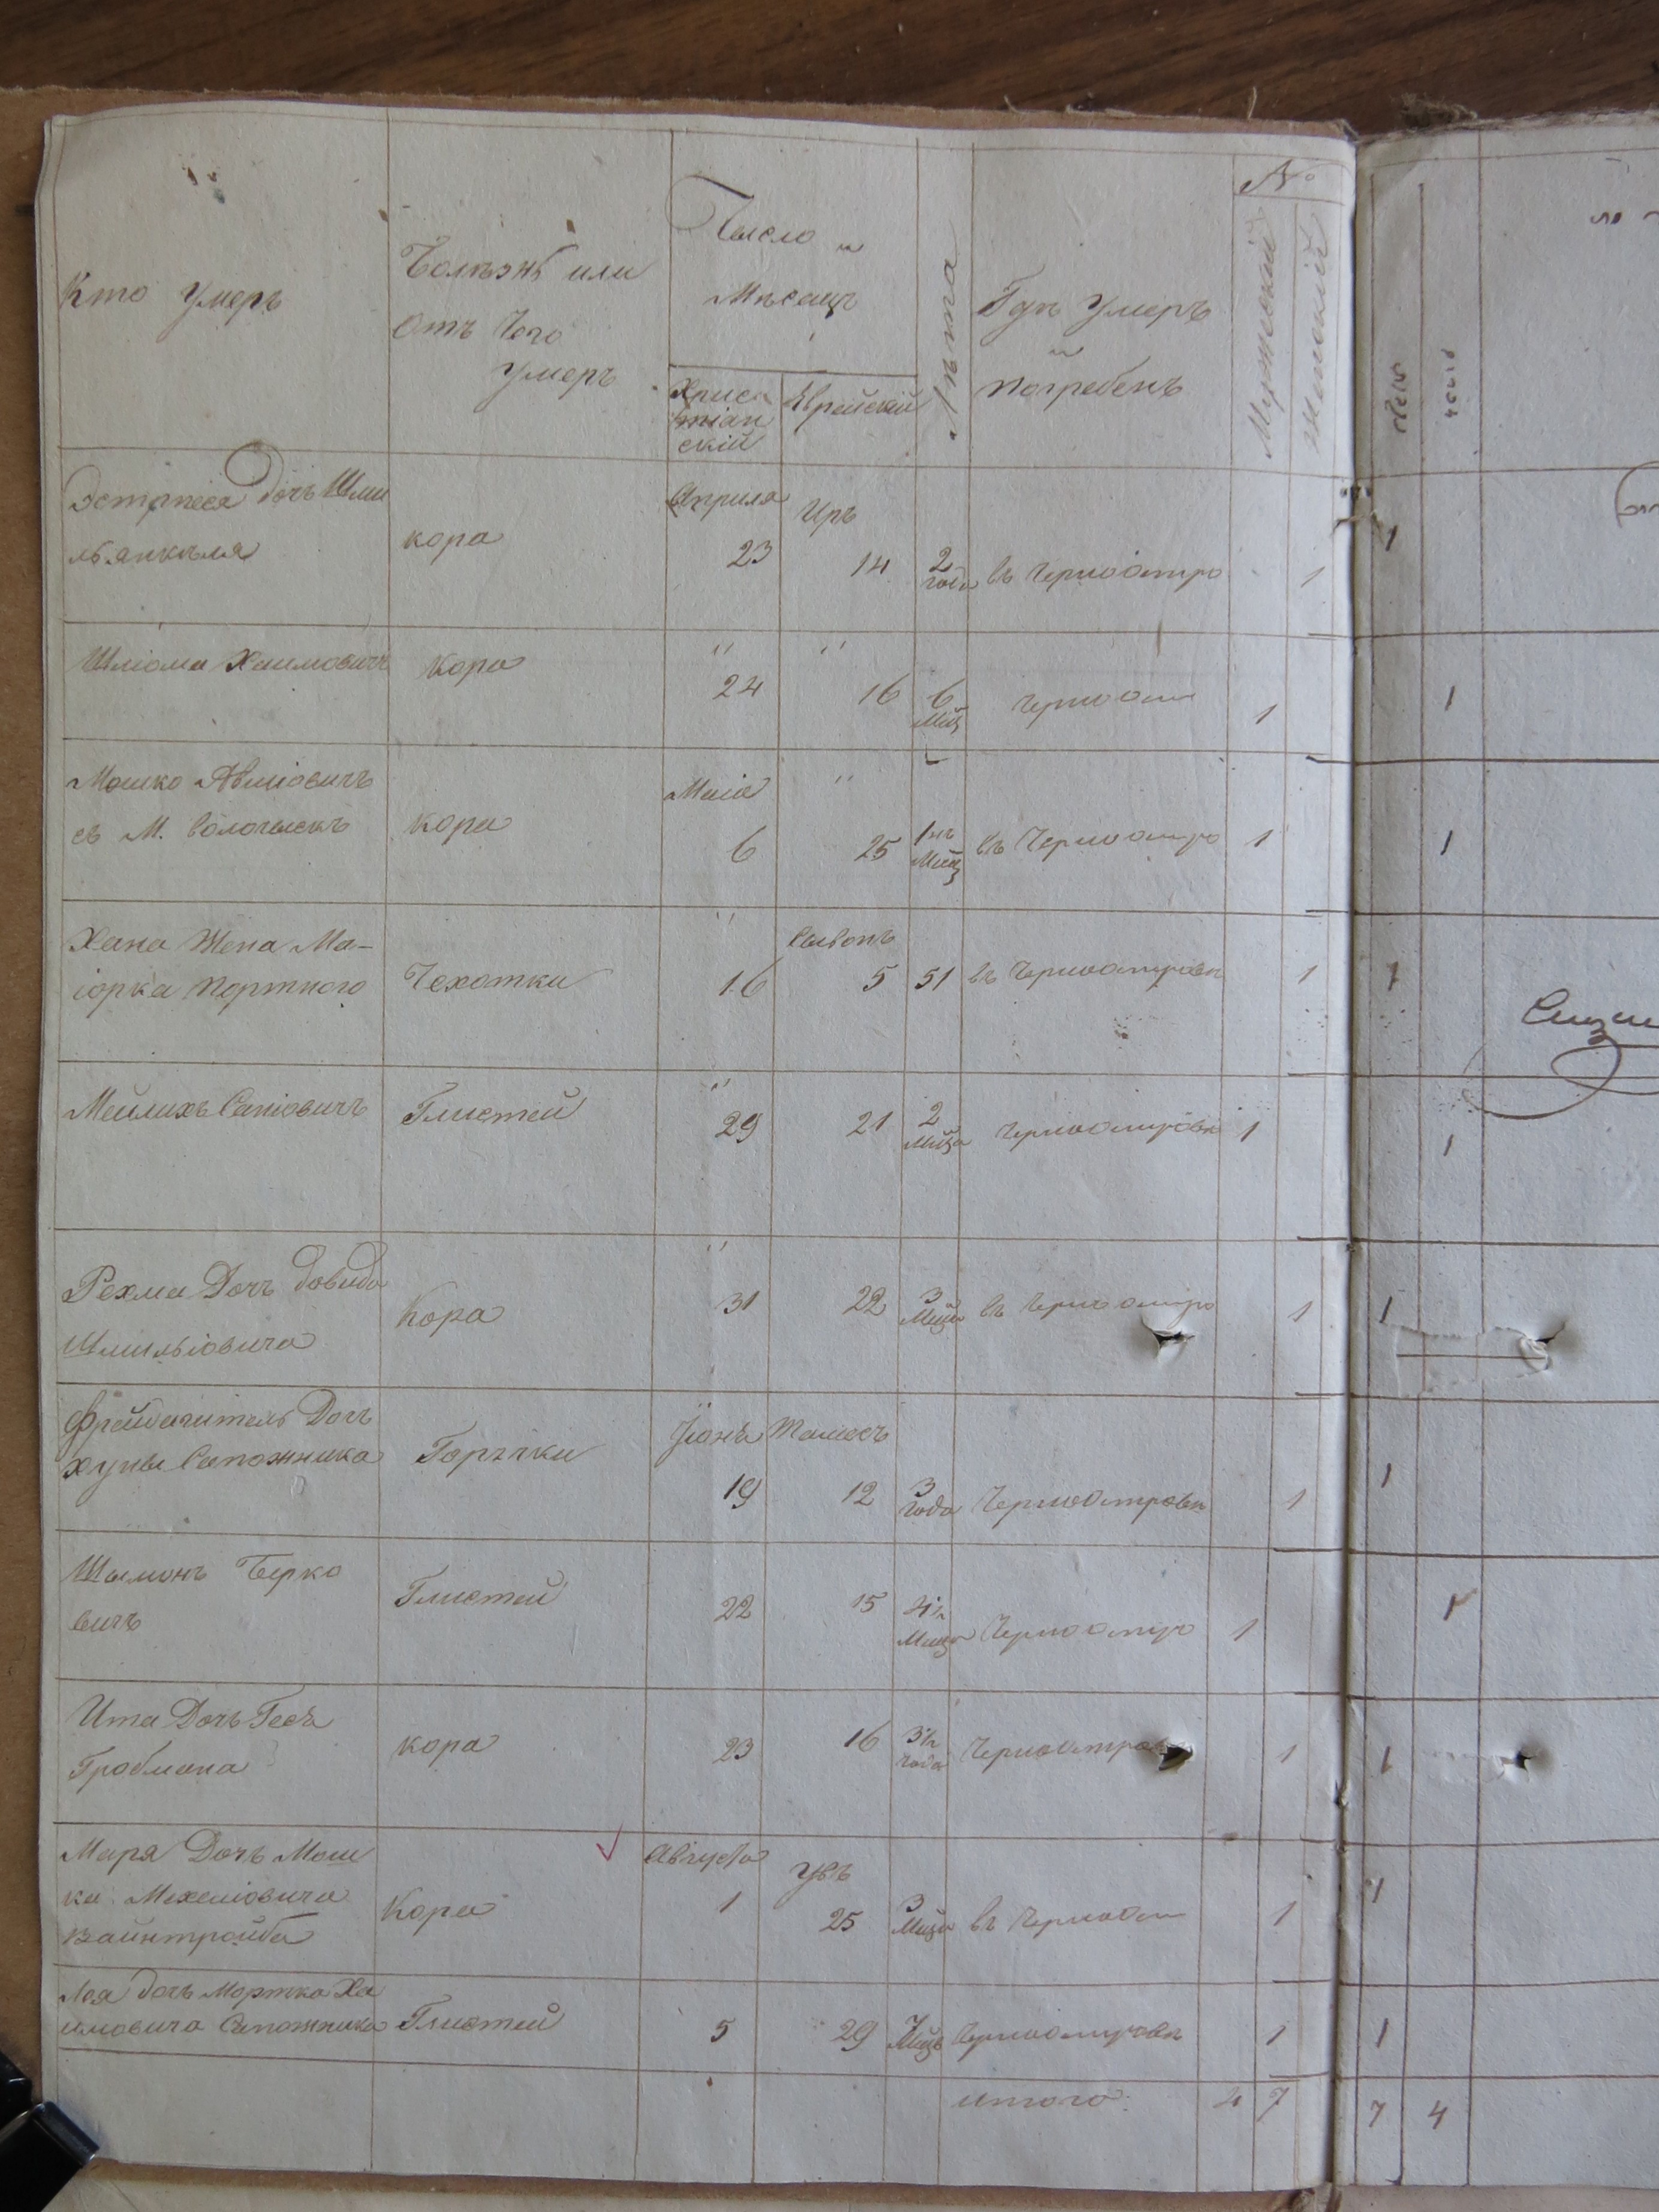 Кто умеръ
Болѣзнь или
Отъ Чего
умеръ
Число и
Мѣсецъ
Хрис
тіан
скій
Еврейскій
Лѣта
Гдѣ умеръ
и
погребенъ
№
Мужескій
Женскій
дочь Шми
ль янкеля
кора
Априля
23
Иръ
14
2
года
въ Черноостро
1
Шліома Хаимовичъ
Кора
"
24
"
16
6
Мцъ
Черноост
1
Мошко
съ М. Волочыскъ
кора
Маія
6
"
25
1нъ
Мцъ
въ Черноостро
1
Хана Жена Ма-
іорка Портного
Чехотки
"
16
Сывонъ
5
51
въ Черноостровѣ
1
Мейлихъ
Глистей
"
29
21
2
Мца
Черноостровѣ
1
Рехма Дочъ Довида
Шмильіовича
Кора
"
31
22
3
Мца
въ Черноостро
1
Дочъ
Хуны Сапожника
Горячки
Іюнъ
19
Тамесъ
12
3
года
Черноостровѣ
1
Шымонъ Берко
вичъ
Глистей
22
15
4½
Мца
Черноостро
1
Ита Дочъ
Гробмана
кора
23
16
3½
года
Черноостров
1
Маря Дочъ Мош
ка Мехеліовича
вайнтройба
Кора
Августа
1
Увъ
25
3
Мца
въ Черноост
1
Лея дочъ Мортка Ха
имовича Сапожника
Глистей
5
29
7
Мцъ
Черноостровѣ
1
итого
4
7
1
1
1
1
1
1
1
1
1
1
1
7
4